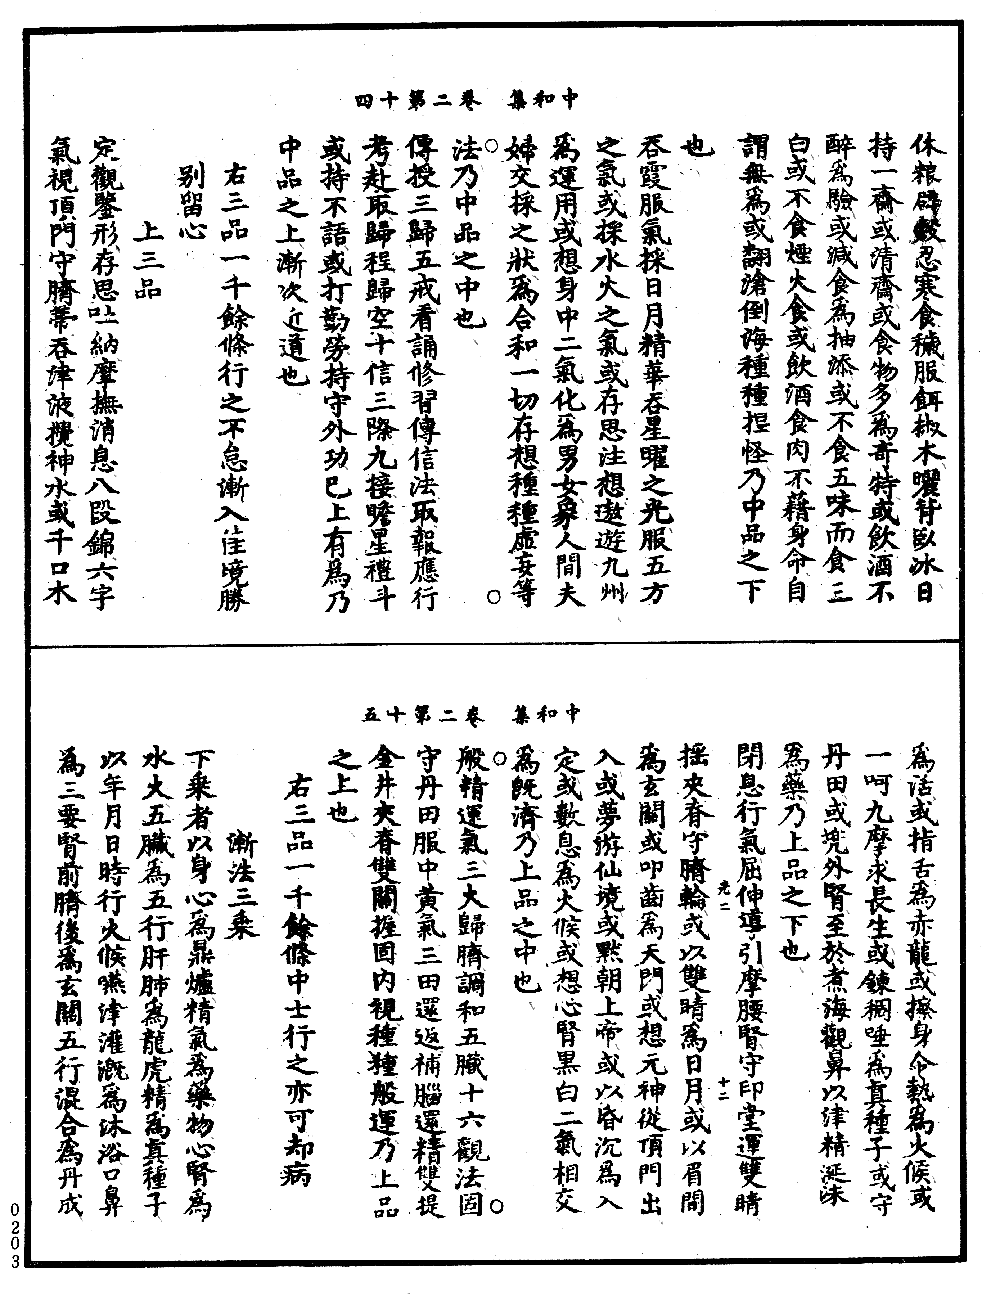 中和集　卷二第十四
休粮辟穀忍寒食穢服餌椒木曬背臥冰日
持一齋或清齋或食物多爲奇特或飲酒不
醉爲驗或減食爲抽添或不食五味而食三
白或不食煙火食或飲酒食肉不藉身命自
謂無爲或翻滄倒海種種捏怪乃中品之下
也
吞霞服氣採日月精華吞星曜之光服五方
之氣或採水火之氣或存思注想遨遊九州
爲運用或想身中二氣化爲男女象人間夫
婦交採之狀爲合和一切存想種種虛妄等
法乃中品之中也
傳授三歸五戒看誦修習傳信法取報應行
考赴取歸程歸空十信三際九接瞻星禮斗
或持不語或打勤勞持守外功已上有爲乃
中品之上漸次近道也
右三品一千餘條行之不怠漸入佳境勝
別留心
上三品
定觀鑒形存思吐納摩撫消息八段錦六字
氣視頂門守臍蒂吞津液攪神水或千口木
中和集　卷二第十五
爲活或指舌爲赤龍或擦身令熱爲火候或
一呵九摩求長生或鍊稠唾爲真種子或守
丹田或兜外腎至於煮海觀鼻以津精涎沫
爲藥乃上品之下也
閉息行氣屈伸導引摩腰腎守印堂運雙睛
光二　十二
搖夾脊守臍輪或以雙睛爲日月或以眉間
爲玄關或叩齒爲天門或想元神從頂門出
入或夢游仙境或默朝上帝或以昏沉爲入
定或數息爲火候或想心腎黑白二氣相交
爲既濟乃上品之中也
般精運氣三火歸臍調和五臟十六觀法固
守丹田服中黃氣三田還返補腦還精雙提
金井夾脊雙關握固內視種種般運乃上品
之上也
右三品一千餘條中士行之亦可却病
漸法三乘
下乘者以身心爲鼎爐精氣爲藥物心腎爲
水火五臟爲五行肝肺爲龍虎精爲真種子
以年月日時行火候嚥津灌溉爲沐浴口鼻
爲三要腎前臍後爲玄關五行混合爲丹成
0203